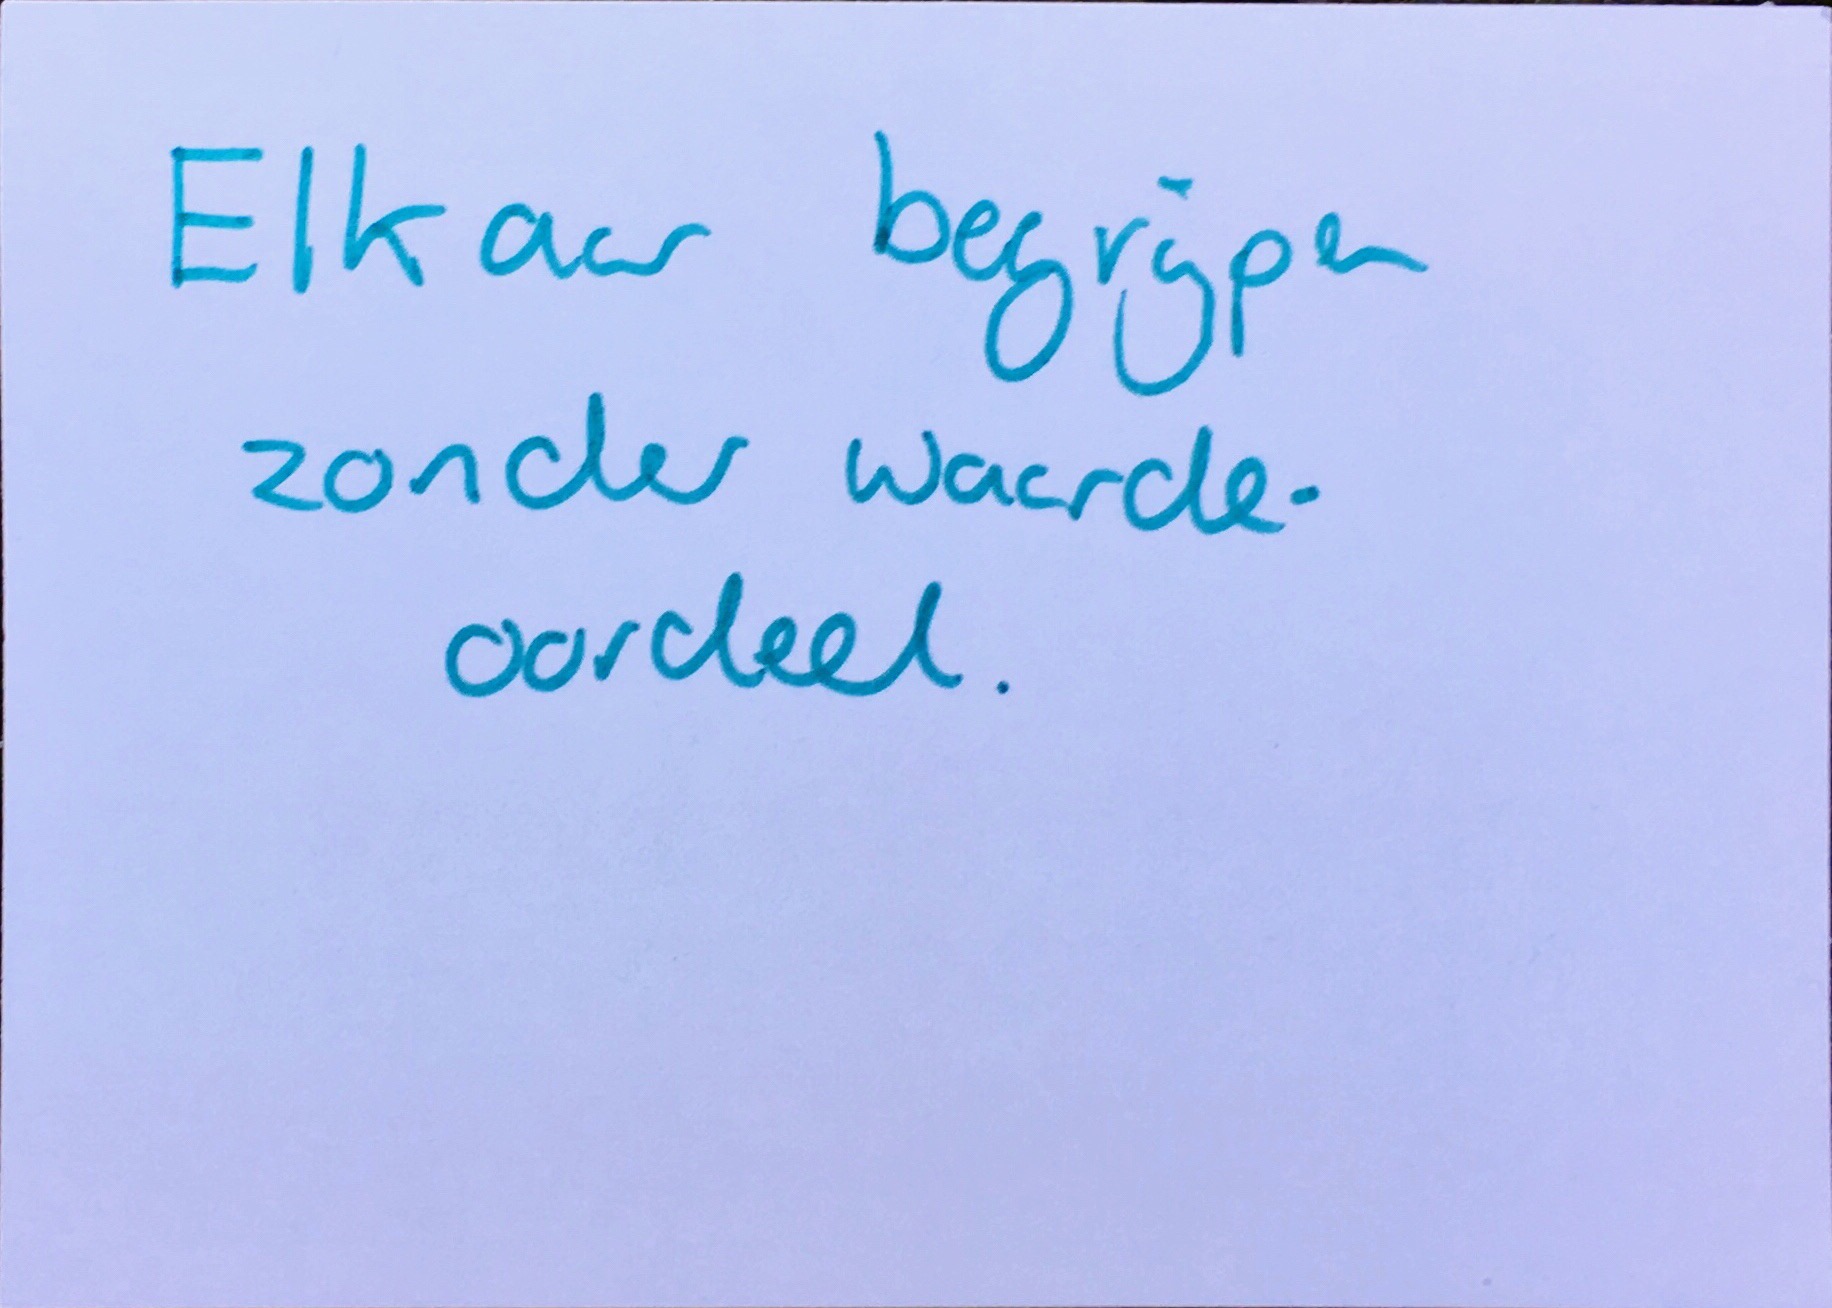 Elkaar begrijpen
zonder waarde-
oordeel.